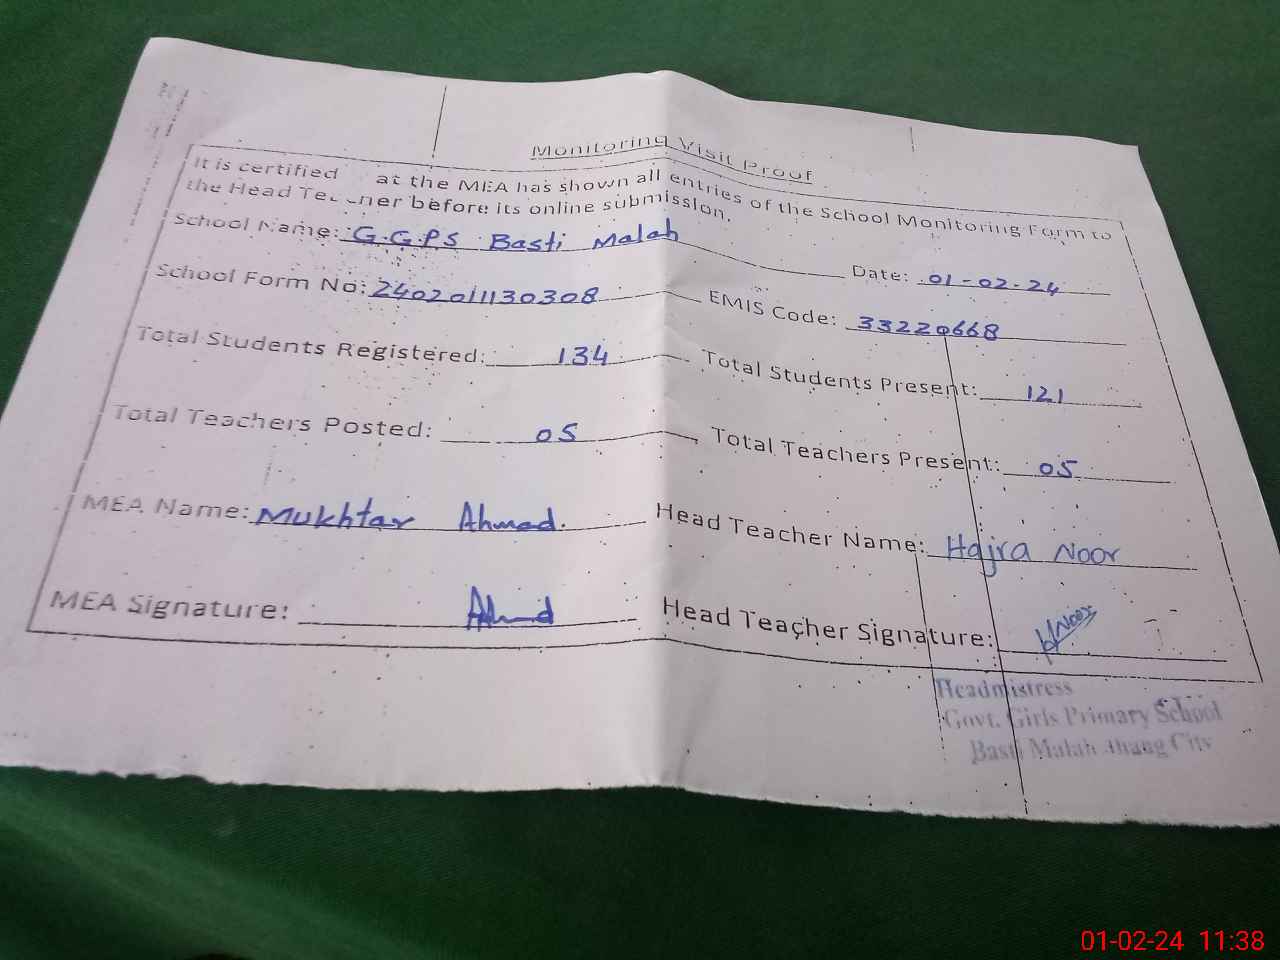 Monitoring Visit Proof
It is certified at the MEA has shown all entries of the School Monitoring Form to
the Head Teacher before its online submission.
School Name: G.G.P.S Basti Malah Date: 01-02-24
School Form No: 2402011130308 EMIS Code: 33220668
Total Students Registered: 134 Total Students Present: 121
Total Teachers Posted: 05 Total Teachers Present: 05
MEA Name: Mukhtar Ahmad. Head Teacher Name: Hajra Noor
MEA Signature: Ahmd Head Teacher Signature: HNoor
Headmistress
Govt. Girls Primary School
Basti Malah Jhang City
01-02-24 11:38